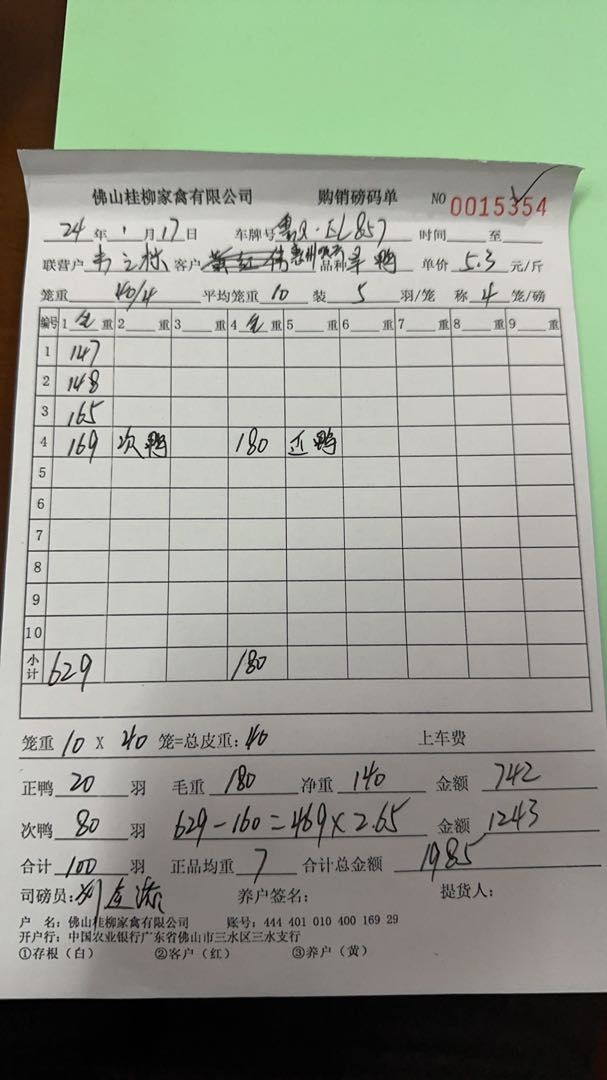 佛山桂柳家禽有限公司 购销磅码单 NO 0015354
24 年 1 月 17 日 车牌号 粤X·EL857 时间 至
联营户 韦立栋 客户 惠州 品种 单价 5.3 元/斤
笼重 40/4 平均笼重 10 装 5 羽/笼 称 4 笼/磅
编号 1 毛 重 2 重 3 重 4 毛 重 5 重 6 重 7 重 8 重 9 重
1 147
2 148
3 165
4 169 次鸭 180 正鸭
5
6
7
8
9
10
小计 629 180
笼重 10 X 40 笼=总皮重: 40 上车费
正鸭 20 羽 毛重 180 净重 140 金额 742
次鸭 80 羽 629-160=469×2.65 金额 1243
合计 100 羽 正品均重 7 合计总金额 1985
司磅员: 养户签名: 提货人:
户 名: 佛山桂柳家禽有限公司 账号: 444 401 010 400 169 29
开户行: 中国农业银行广东省佛山市三水区三水支行
①存根（白） ②客户（红） ③养户（黄）